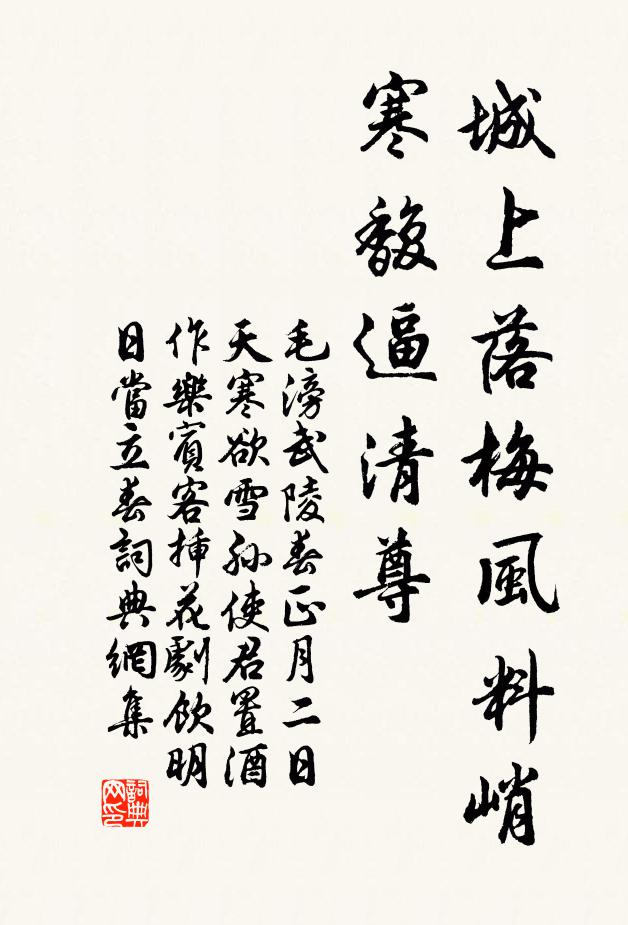 城上落梅風料峭
寒馥逼清尊
毛滂武陵春正月二日
天寒欲雪孫使君置酒
作樂賓客插花劇飲明
日當立春詞典網集
詞典
网印